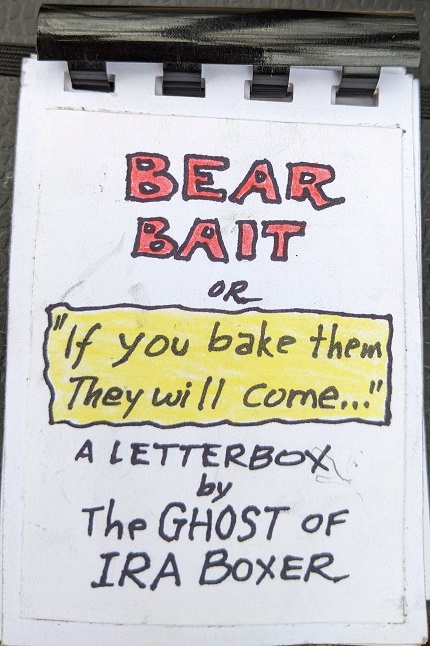 BEAR
BAIT
OR
"If you bake them
They will come..."
A LETTERBOX
by
The GHOST OF
IRA BOXER